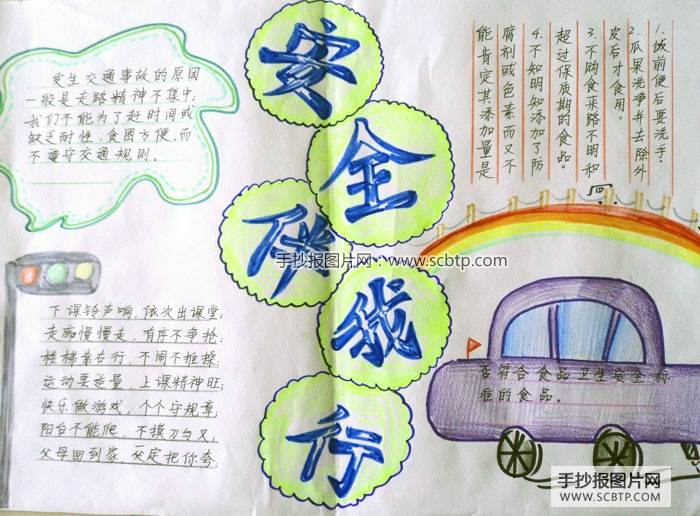 安
全
伴
我
行
发生交通事故的原因
一般是走路精神不集中;
我们不能为了赶时间或
缺乏耐性、贪图方便,而
不遵守交通规则。
下课铃声响,依次出课堂;
走廊慢慢走,有序不争抢;
楼梯靠右行,不闹不推搡;
运动要适量,上课精神旺;
快乐做游戏,个个守规章;
阳台不能爬,不摸刀与叉,
父母回到家,一定把你夸.
1.饭前便后要洗手;
2.瓜果洗净并去除外
皮后才食用。
3.不购食来路不明和
超过保质期的食品。
4.不知明知添加了防
腐剂或色素而又不
能肯定其添加量是
否符合食品卫生安全标
准的食品。
手抄报图片网:www.scbtp.com
手抄报图片网
WWW.SCBTP.COM